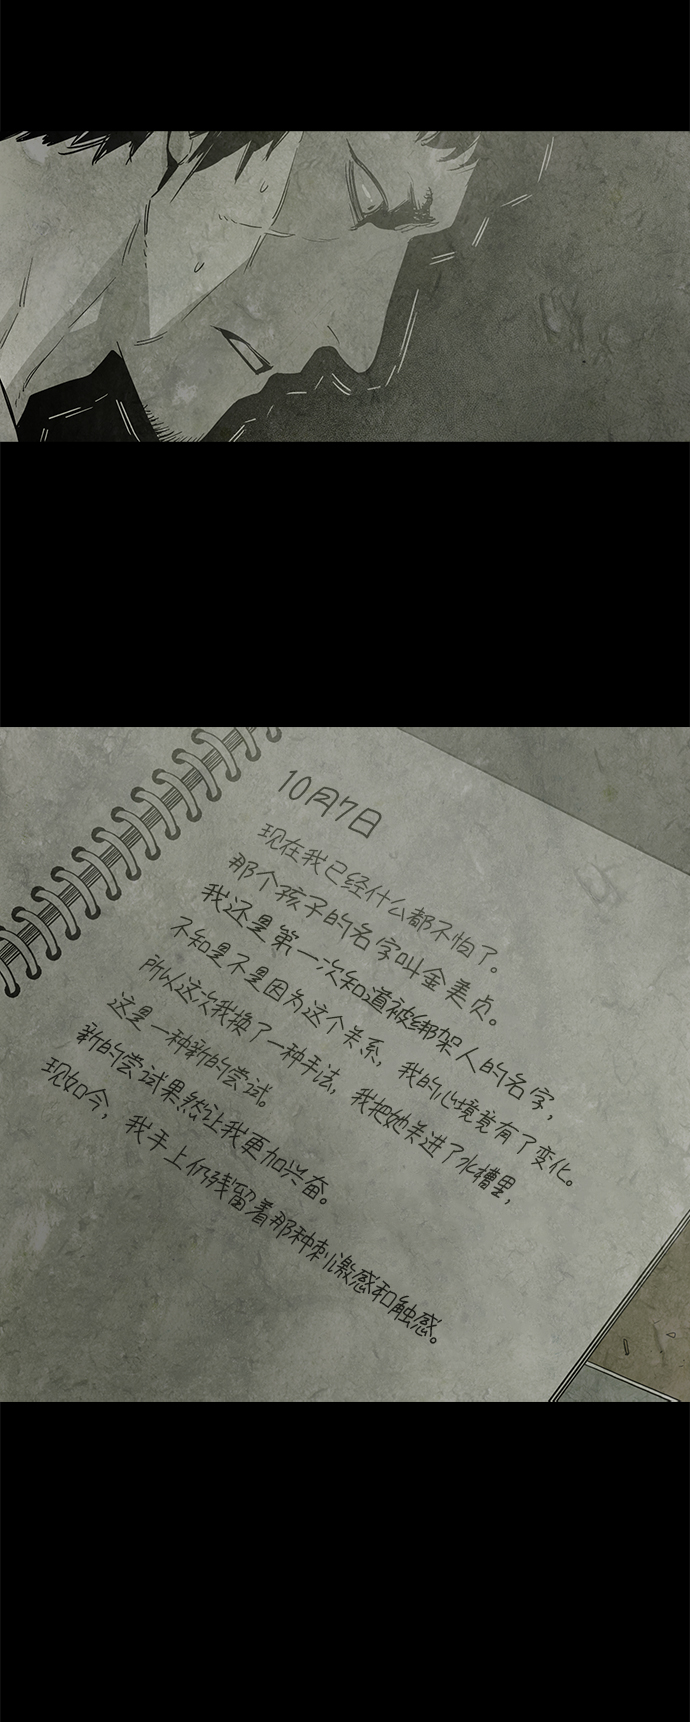 10月7日
现在我已经什么都不怕了。
那个孩子的名字叫金美贞。
我还是第一次知道被绑架人的名字，
不知是不是因为这个关系，我的心境竟有了变化。
所以这次我换了一种手法，我把她关进了水槽里，
这是一种新的尝试。
新的尝试果然让我更加兴奋。
现如今，我手上仍残留着那种刺激感和触感。